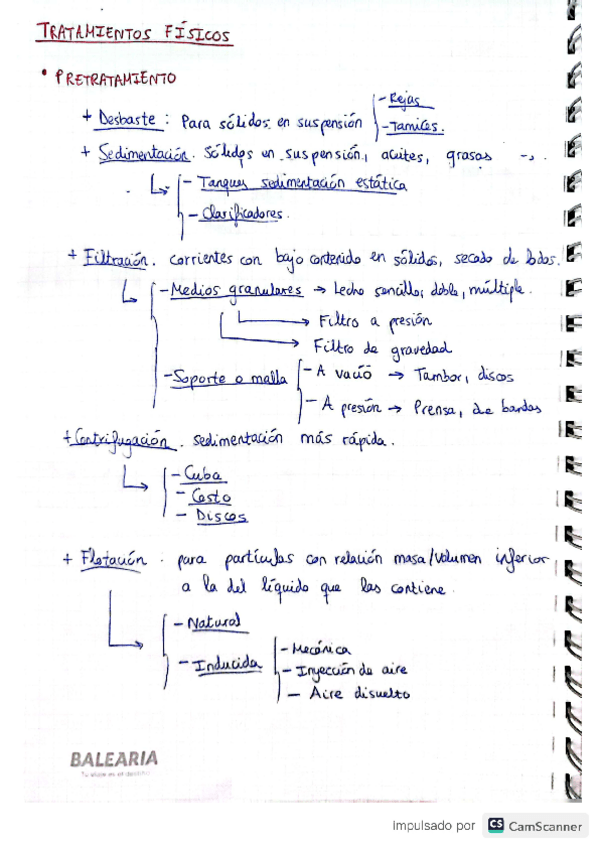 TRATAMIENTOS FÍSICOS
• PRETRATAMIENTO
+ Desbaste : Para sólidos en suspensión - Rejas
- Tamices.
+ Sedimentación. Sólidos en suspensión, aceites, grasas ...
- Tanques sedimentación estática
- Clarificadores.
+ Filtración. corrientes con bajo contenido en sólidos, secado de lodos.
- Medios granulares → Lecho sencillo, doble, múltiple.
→ Filtro a presión
→ Filtro de gravedad
- Soporte o malla - A vacío → Tambor, discos
- A presión → Prensa, de bandas
+ Centrifugación. sedimentación más rápida.
- Cuba
- Cesto
- Discos
+ Flotación. para partículas con relación masa/volumen inferior
a la del líquido que las contiene.
- Natural
- Inducida - Mecánica
- Inyección de aire
- Aire disuelto
BALEARIA
Impulsado por CS CamScanner